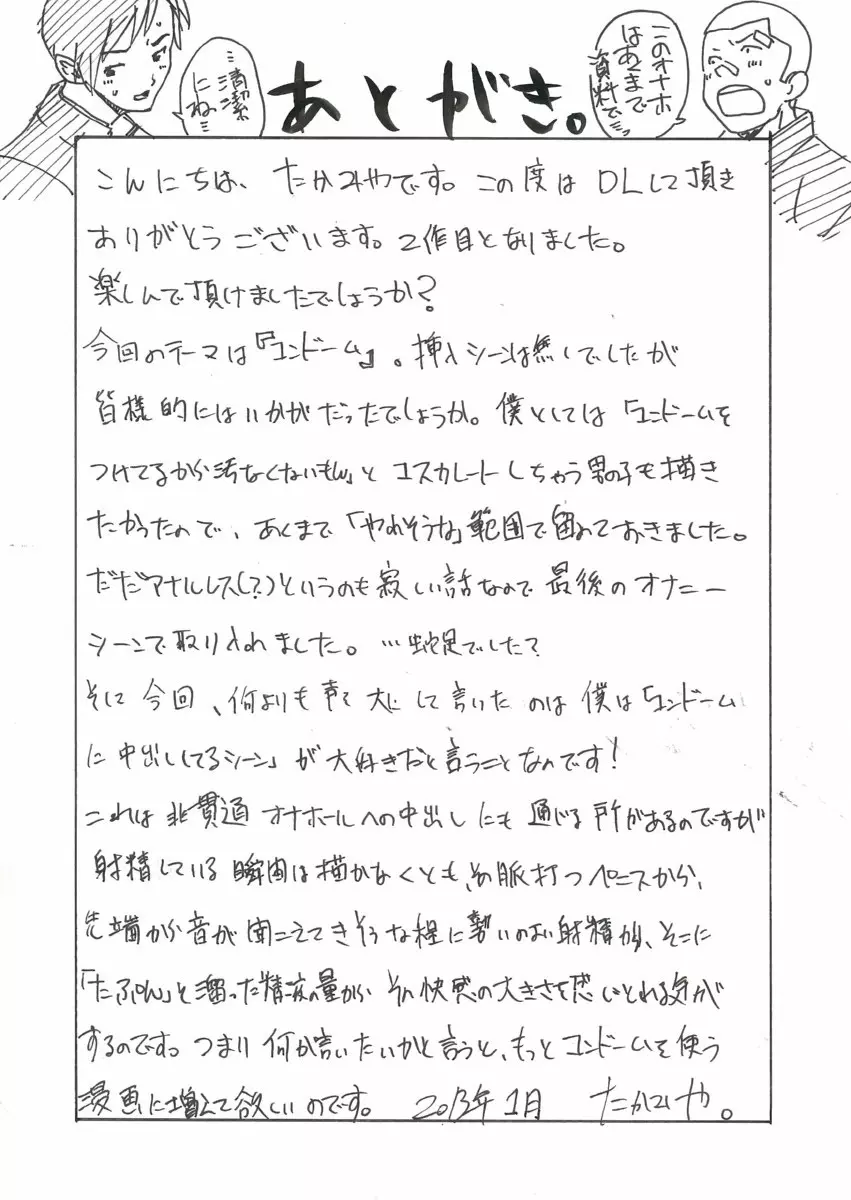 あとがき。
このオナホはあくまで資料で…
…清潔にね…
こんにちは、たかみやです。この度はDLして頂き
ありがとうございます。2作目となりました。
楽しんで頂けましたでしょうか？
今回のテーマは『コンドーム』。挿入シーンは無しでしたが
皆様的にはいかがだったでしょうか。僕としては「コンドームを
つけてるから汚なくないもん」とエスカレートしちゃう男の子も描き
たかったので、あくまで「やれそうな」範囲で留めておきました。
ただアナルレス(？)というのも寂しい話なので最後のオナニー
シーンで取り入れました。…蛇足でした？
そして今回、何よりも声を大にして言いたのは僕は「コンドーム
に中出ししてるシーン」が大好きだと言うことなのです！
これは非貫通オナホールへの中出しにも通じる所があるのですが
射精している瞬間は描かなくとも、その脈打つペニスから、
先端から音が聞こえてきそうな程に勢いのよい射精が、そこに
「たぷん」と溜った精液の量から その快感の大きさを感じとれる気が
するのです。つまり何が言いたいかと言うと、もっとコンドームを使う
漫画に増えて欲しいのです。 2013年1月 たかみや。